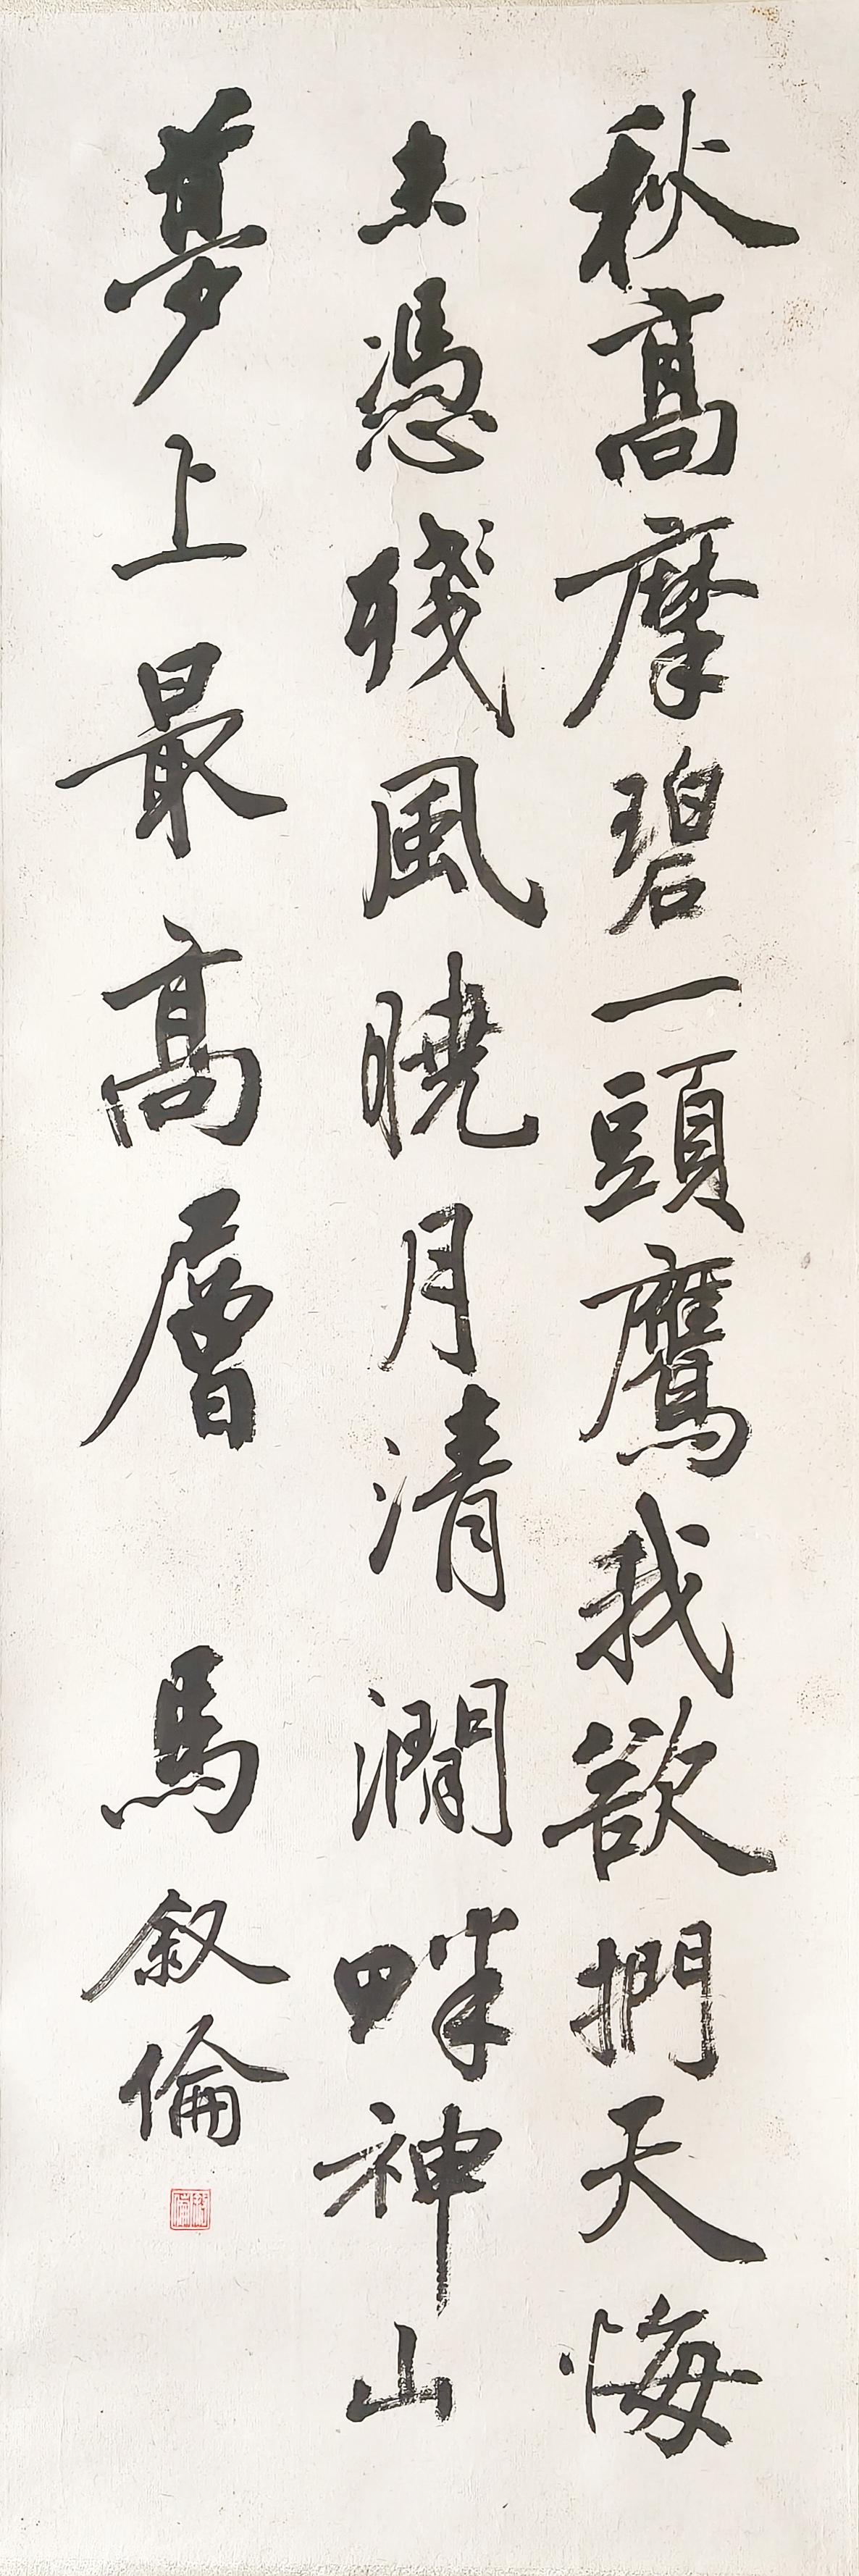 秋高摩碧一頭鷹我欲捫天悔
未憑殘風曉月清澗畔神山
夢上最高層 馬叙倫